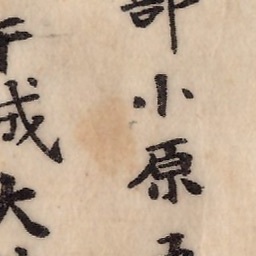 部小原
成大